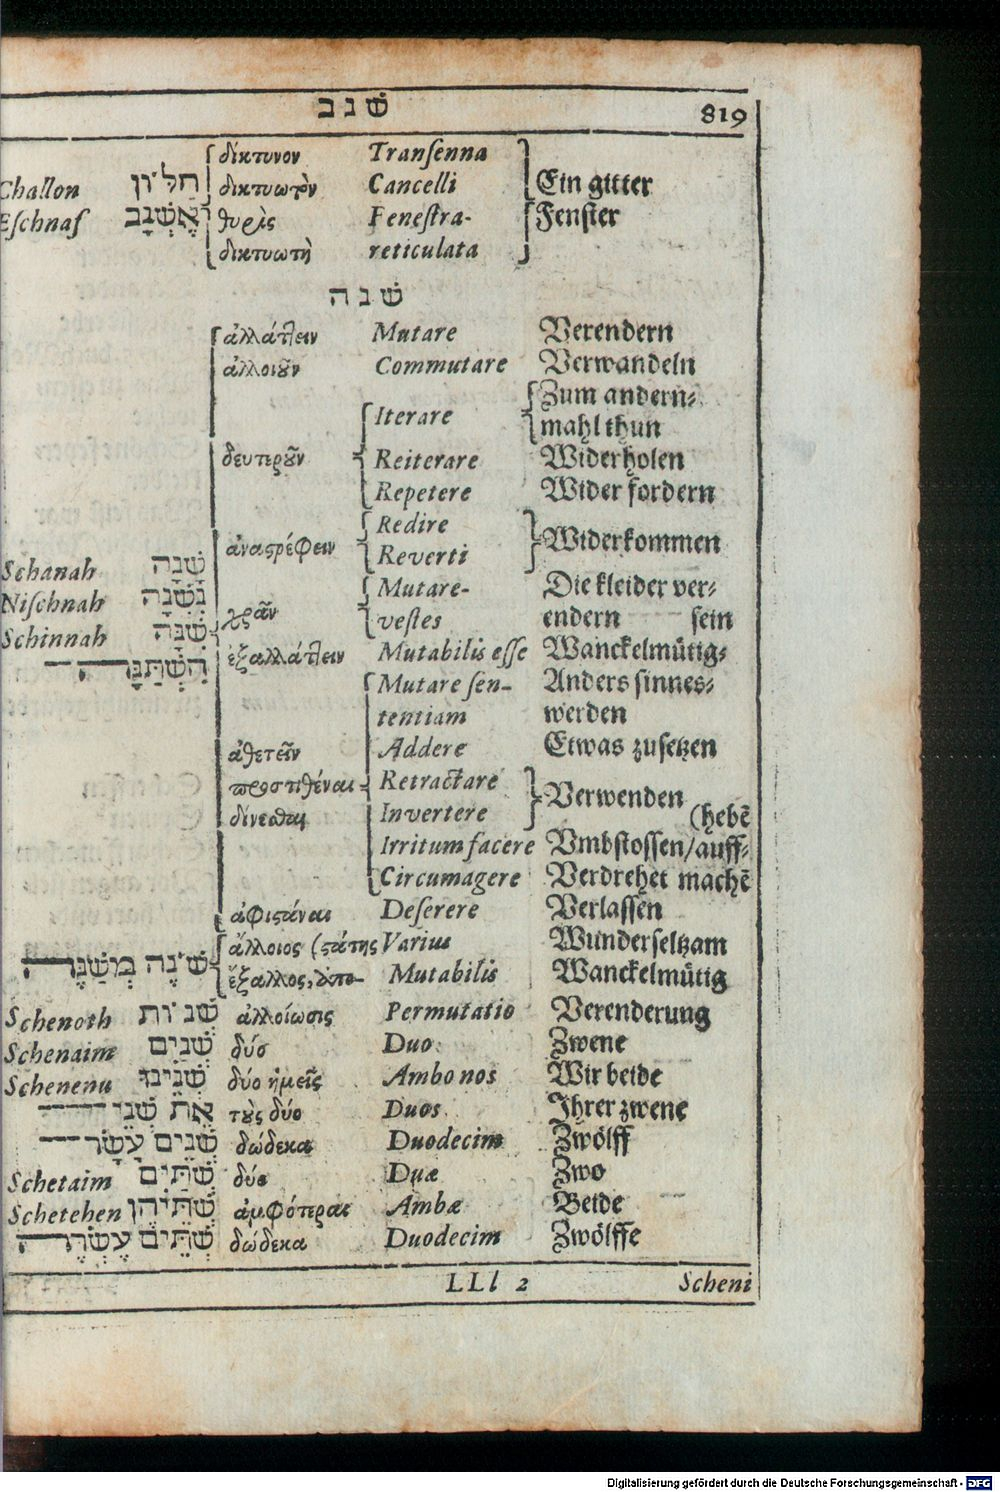 שׁנב 819
δίκτυνον Tranſenna
Challon חַלּוֹן δικτυωτὸν Cancelli Ein gitter
Eſchnaf אֶשְׁנָב θυρὶς Feneſtra- Fenſter
δικτυωτὴ reticulata
שׁנה
ἀλλάττειν Mutare Verendern
ἀλλοιοῦν Commutare Verwandeln
Zum andern⸗
Iterare mahl thun
δευτεροῦν Reiterare Widerholen
Repetere Wider fordern
Redire
ἀναςρέφειν Reverti Widerkommen
Schanah שָׁנָה Mutare- Die kleider ver⸗
Niſchnah נִשְׁנָה veſtes endern ſein
Schinnah שִׁנָּה ἐξαλλάττειν Mutabilis eſſe Wanckelmütig⸗
Mutare ſen- Anders ſinnes⸗
tentiam werden
ἀθετεῖν Addere Etwas zuſetzen
προστιθέναι Retractare Verwenden
Invertere (hebē
Irritum facere Vmbſtoſſen/auff⸗
Circumagere Verdrehet machē
ἀφιςάναι Deſerere Verlaſſen
ἄλλοιος (ςάτης Varius Wunderſeltzam
שׁוֹנֶה ἔξαλλος, ἀπο- Mutabilis Wanckelmütig
Schenoth שְׁנוֹת ἀλλοίωσις Permutatio Verenderung
Schenaim שְׁנַיִם δύο Duo Zwene
Schenenu שְׁנֵינוּ δύο ἡμεῖς Ambo nos Wir beide
אֶת שְׁנֵי τοὺς δύο Duos Ihrer zwene
שְׁנֵים עָשָׂר δώδεκα Duodecim Zwölff
Schetaim שְׁתַּיִם δύο Duæ Zwo
Schetehen שְׁתֵּיהֶן ἀμφότεραι Ambæ Beide
שְׁתֵּים עֶשְׂרֵה δώδεκα Duodecim Zwölffe
LLl 2 Scheni
Digitalisierung gefördert durch die Deutsche Forschungsgemeinschaft - DFG